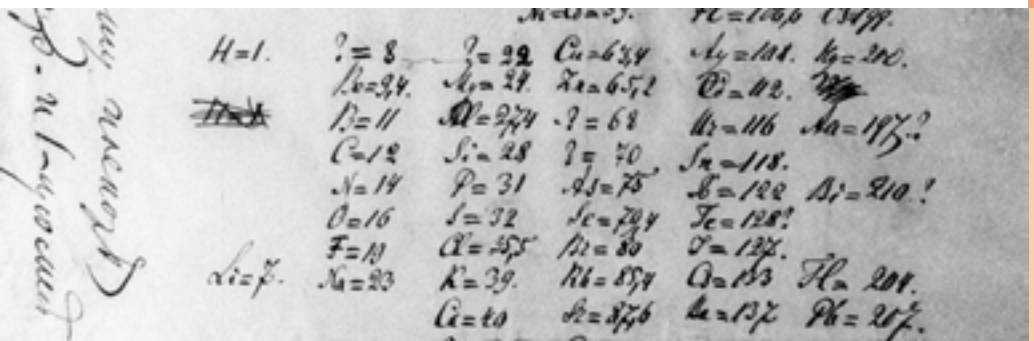 H=1. ?=8 ?=22 Cu=63,4 Ag=108. Hg=200.
Be=9,4. Mg=24. Zn=65,2 Cd=112.
B=11 Al=27,4 ?=68 Ur=116 Au=197?
C=12 Si=28 ?=70 Sn=118.
N=14 P=31 As=75 Sb=122 Bi=210?
O=16 S=32 Se=79,4 Te=128?
F=19 Cl=35,5 Br=80 J=127.
Li=7. Na=23 K=39. Rb=85,4 Cs=133 Tl=204.
Ca=40 Sr=87,6 Ba=137 Pb=207.